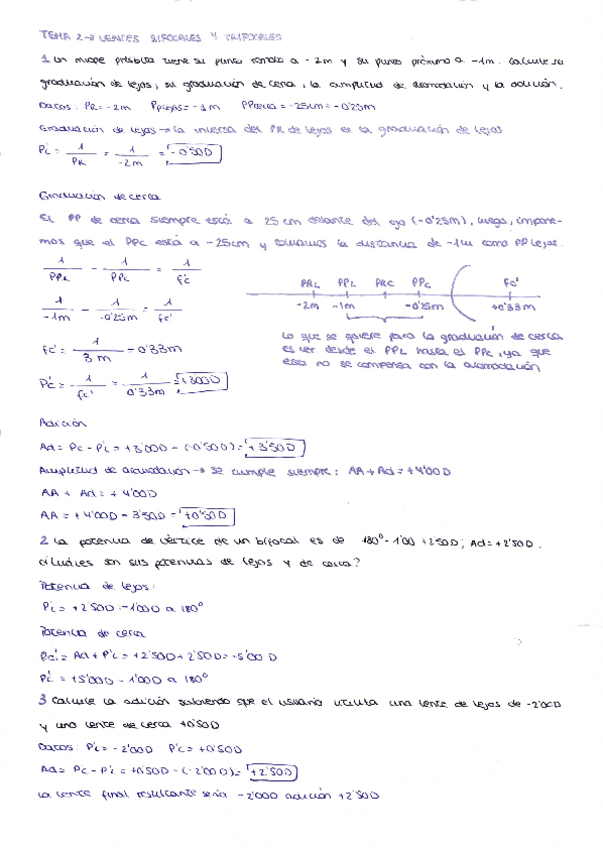 TEMA 2 → LENTES BIFOCALES Y TRIFOCALES
1 Un miope présbita tiene su punto remoto a -2m y su punto próximo a -1m. Calcule su
graduación de lejos, su graduación de cerca, la amplitud de acomodación y la adición.
Datos: PR = -2m PPlejos = -1m PPcerca = -25cm = -0'25m
Graduación de lejos → la inversa del PR de lejos es la graduación de lejos
P'L = 1/PR = 1/-2m = -0'50D
Graduación de cerca
El PP de cerca siempre está a 25cm delante del ojo (-0'25m), luego, impone-
mos que el PPc está a -25cm y tomamos la distancia de -1m como PP lejos.
1/PPL - 1/PPC = 1/fc'
1/-1m - 1/-0'25m = 1/fc'
fc' = 1/3 m = 0'33m
P'c = 1/fc' = 1/0'33m = +3'00D
PRL PPL PRC PPC fc'
-2m -1m -0'25m +0'33m
Lo que se quiere para la graduación de cerca
es ver desde el PPL hasta el PPc, ya que
eso no se compensa con la acomodación
Adición
Ad = Pc - P'L = +3'00D - (-0'50D) = +3'50D
Amplitud de acomodación → se cumple siempre: AA + Ad = +4'00D
AA + Ad = +4'00D
AA = +4'00D - 3'50D = +0'50D
2 La potencia de vértice de un bifocal es de 180º - 1'00 + 2'50D; Ad = +2'50D.
¿Cuáles son sus potencias de lejos y de cerca?
Potencia de lejos:
P'L = +2'50D -1'00D a 180º
Potencia de cerca
Pc' = Ad + P'L = +2'50D + 2'50D = +5'00D
P'c = +5'00D - 1'00D a 180º
3 Calcule la adición sabiendo que el usuario utiliza una lente de lejos de -2'00D
y una lente de cerca +0'50D
Datos: P'L = -2'00D P'c = +0'50D
Ad = Pc - P'L = +0'50D - (-2'00D) = +2'50D
La lente final resultante sería -2'00D adición +2'50D